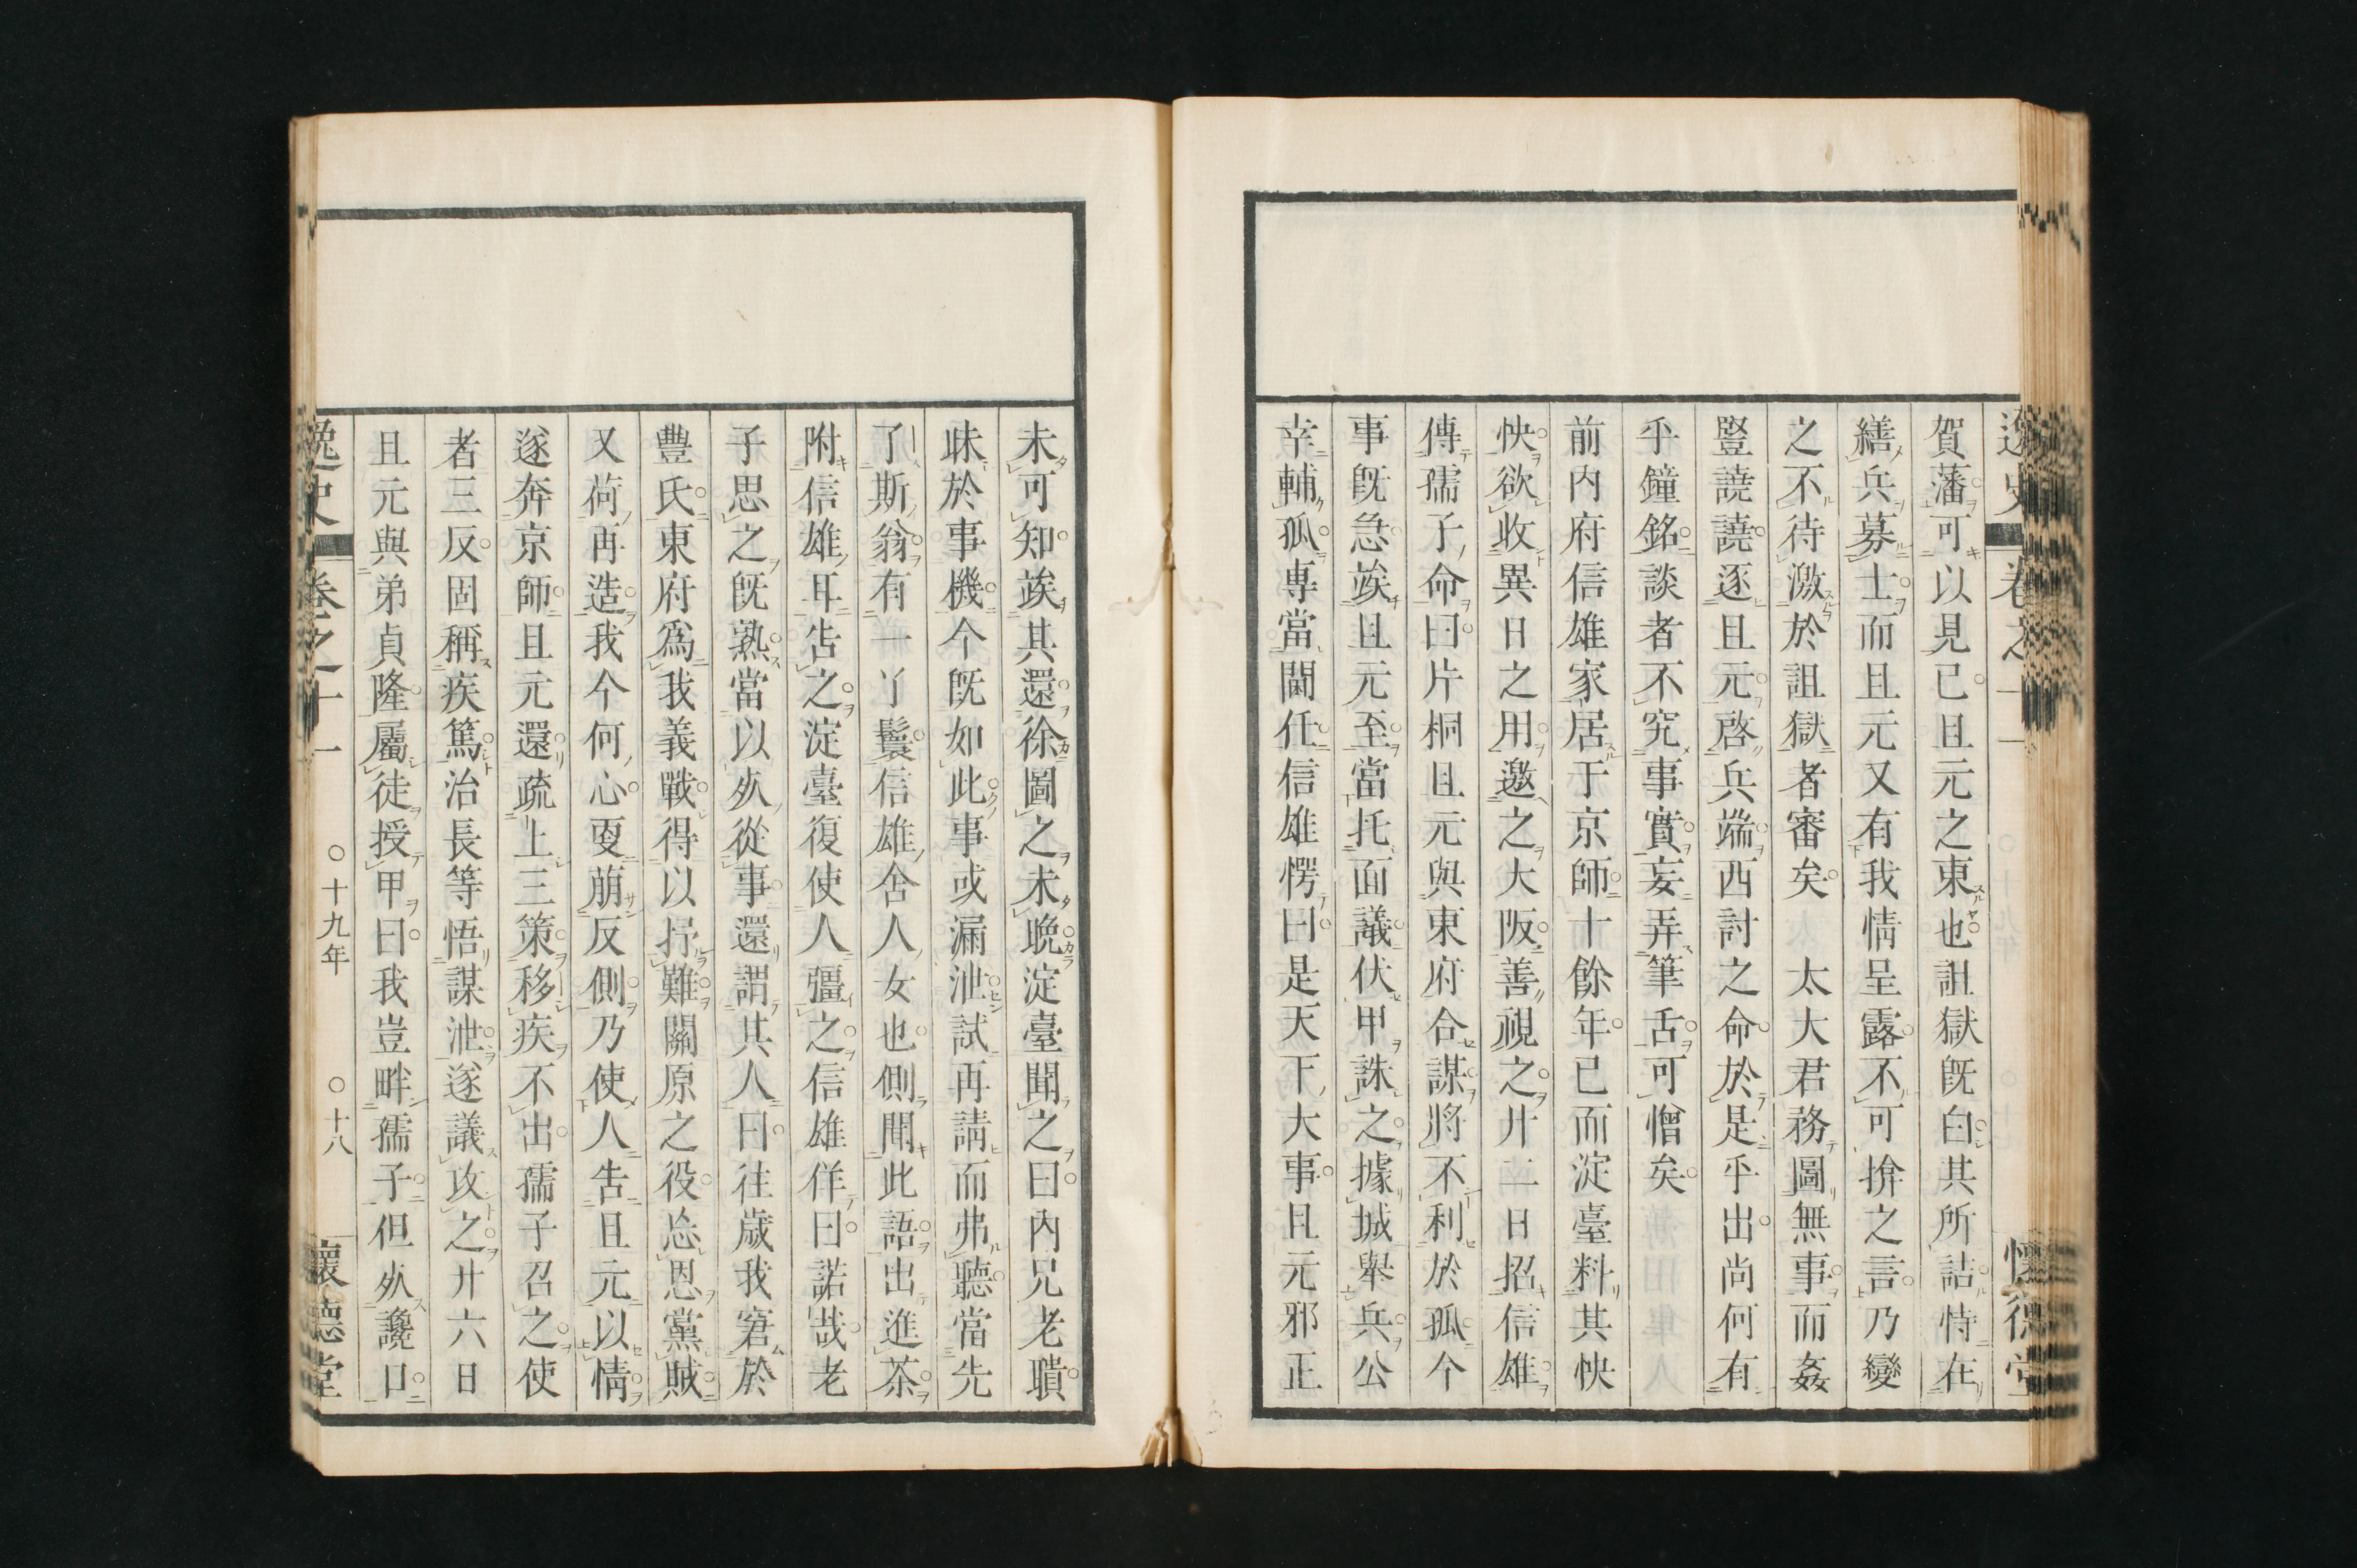 逸史 卷之十一 懷德堂
賀藩可以見已且元之東也詛獄既白其所詰恃在
繕兵募士而且元又有我情呈露不可揜之言乃變
之不待激於詛獄者審矣 太大君務圖無事而姦
豎譊譊逐且元啓兵端西討之命於是乎出尚何有
乎鐘銘談者不究事實妄弄筆舌可憎矣
前内府信雄家居于京師十餘年已而淀臺料其怏
怏欲收異日之用邀之大阪善視之廾二日招信雄
傳孺子命曰片桐且元與東府合謀將不利於孤今
事既急竢且元至當托面議伏甲誅之據城舉兵公
幸輔孤專當閫任信雄愕曰是天下大事且元邪正
未可知竢其還徐圖之未晩淀臺聞之曰内兄老聵
昧於事機今既如此事或漏泄試再請而弗聽當先
了斯翁有一丫鬟信雄舍人女也側聞此語出進茶
附信雄耳告之淀臺復使人彊之信雄佯曰諾哉老
子思之既熟當以死從事還謂其人曰往歲我窘於
豐氏東府爲我義戰得以抒難關原之役忘恩黨賊
又荷再造我今何心更萠反側乃使人告且元以情
遂奔京師且元還疏上三策移疾不出孺子召之使
者三反固稱疾篤治長等悟謀泄遂議攻之廾六日
且元與弟貞隆屬徒授甲曰我豈畔孺子但死讒口
逸史 卷之十一 ○十九年 ○十八 懷德堂